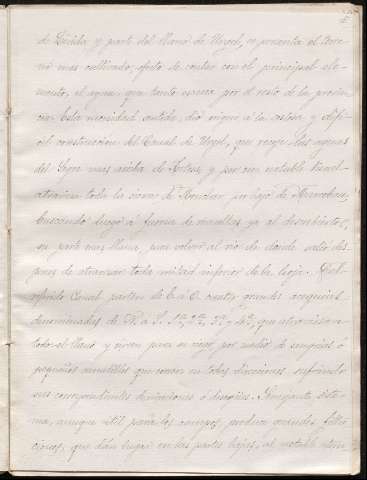 de Lérida y parte del llano de Urgel, se presenta el terre-
no mas cultivado, efecto de contar con el principal ele-
mento, el agua, que tanto escasea por el resto de la provin-
cia. Esta necesidad sentida, dió origen á la costosa y difi-
cil construccion del Canal de Urgel, que recoge las aguas
del Segre mas arriba de y por un notable tunel
atraviesa toda la sierra de por bajo de
buscando luego á fuerza de ya al descubierto,
su parte mas llana, para volver al rio de donde salió des-
pues de atravesar toda mitad inferior de la hoja. Del re-
ferido Canal parten de E á O. cuatro grandes acequias
denominadas de N. a S. 1ª, 2ª, 3ª y 4ª, que atraviesan
todo el llano y sirven para su riego por medio de sangrias ó
pequeños canalillos que corren en todas direcciones sufriendo
sus correspondientes derivaciones ó Semejante siste-
ma, aunque util para los campos, produce grandes filtra-
ciones, que dán lugar en las partes bajas, al notable